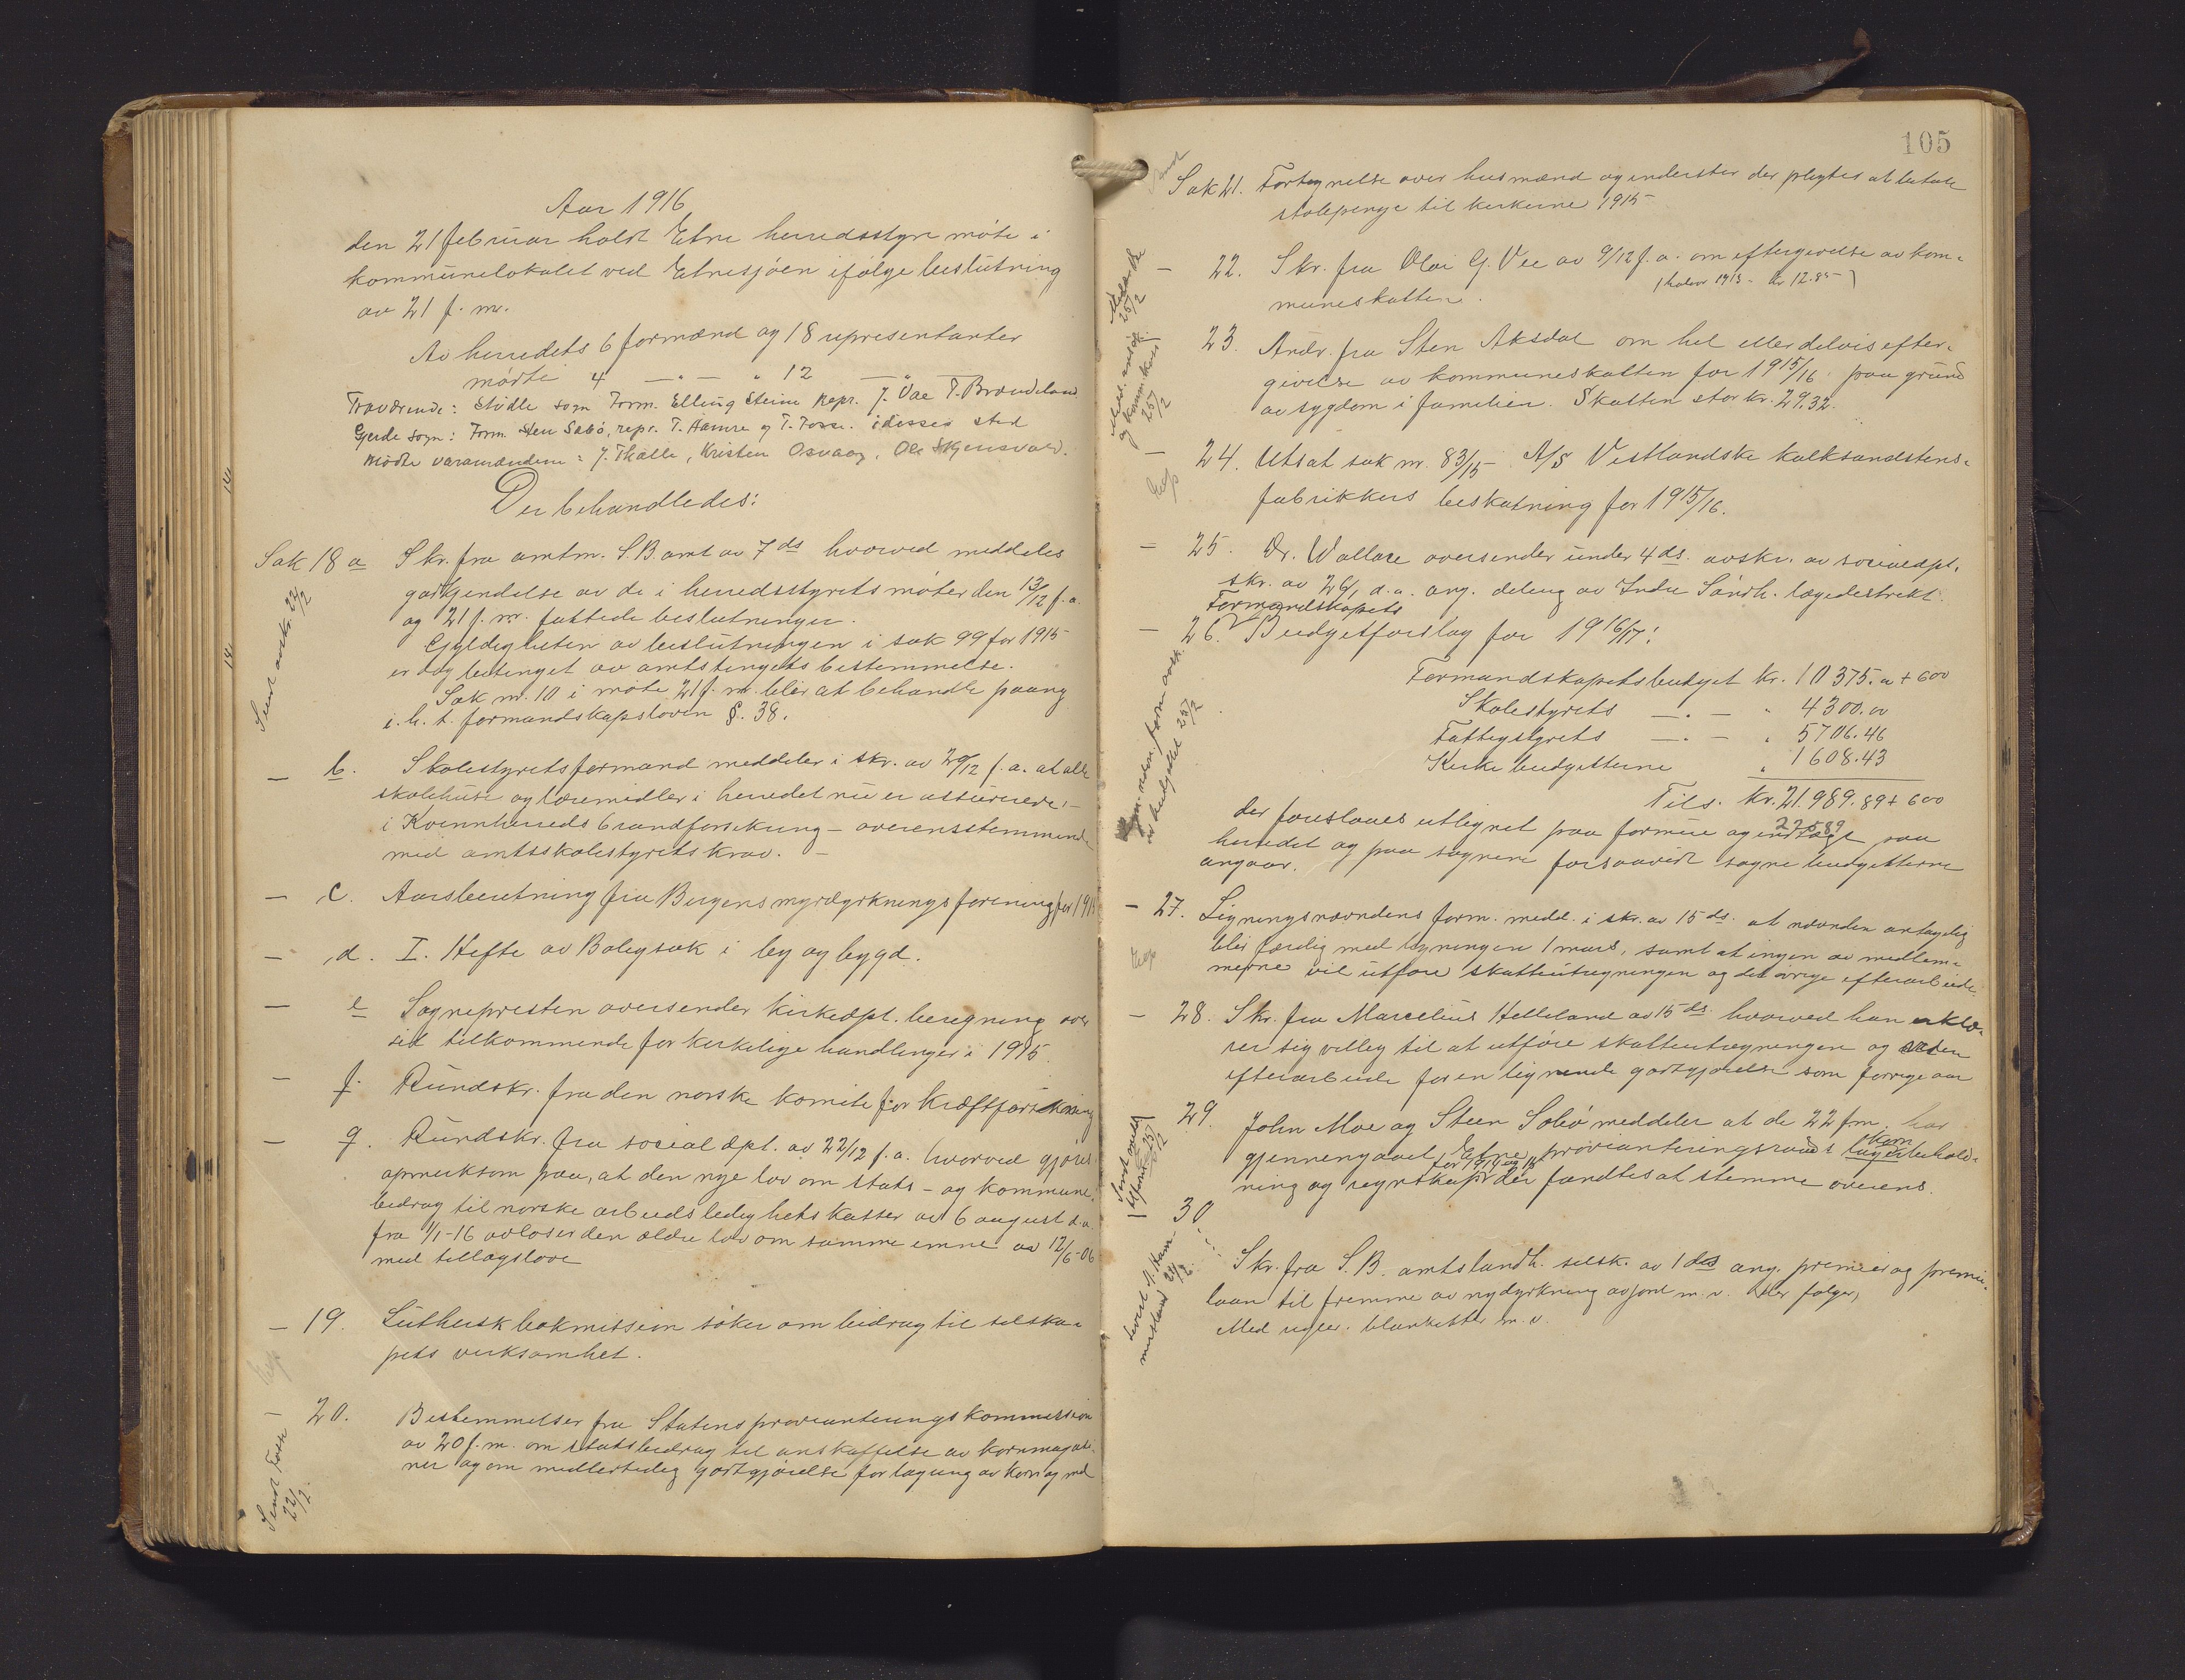 Aar 1916
den 21 februar holdt Etne herredsstyre møte i
kommunelokalet ved Etnesjøen ifølge beslutning
av 21 f. m.
Av herredets 6 formænd og 18 representanter
møtte 4 —"— " 12 —"—
Fraværende: Stødle sogn Form. Elling Steine Repr. J. Vae T. Brændeland
Gjerde sogn: Form. Sten Sæbø, repr. T. Hamre og T. Fosse. i disses sted
mødte varamændene: J. Thalle, Kristen Osvaag, Ole Skjensvold.
Der behandledes:
Sak 18 a Skr. fra amtm. S.B. amt av 7 ds hvorved meddeles
godkjendelse av de i herredsstyrets møter den 13/12 f. a.
og 21 f. m. fattede beslutninger.
Gyldigheten av beslutningen i sak 99 for 1915
er dog betinget av amtstingets bestemmelse.
Sak nr. 10 i møte 21 f. m. blir at behandle paany
i. h. t. formandskapsloven §. 38.
Sendt avskr. 22/2
— b. Skolestyrets formand meddeler i skr. av 29/12 f. a. at alle
skolehuse og læremidler i herredet nu er assurerede
i Kvinnherreds brandforsikring – overensstemmende
med amtsskolestyrets krav. –
— c. Aarsberetning fra Bergens myrdyrkningsforening for 1915
— d. I. Hefte av Boligsak i by og bygd.
— e Sognepresten oversender kirkedpt. beregning over
sit tilkommende for kirkelige handlinger i 1915.
— f. Rundskr. fra den norske komite for Kræftforskning
— g. Rundskr. fra social dpt. av 22/12 f. a. hvorved gjøres
opmerksom paa, at den nye lov om stats- og kommune-
bidrag til norske arbeidsledighetskasser av 6 august d. a.
fra 1/1-16 avløser den ældre lov om samme emne av 12/6-06
med tillægslove
— 19. Luthersk bokmission søker om bidrag til selska-
pets virksomhet.
Exp
— 20. Bestemmelser fra Statens provianteringskommission
av 20 f. m. om statsbidrag til anskaffelse av kornmagasi-
ner og om midlertidig godtgjørelse for lagring av korn og mel
22/2
105
Sak 21. Fortegnelse over husmænd og inderster der pligter at betale
stolepenge til kirkerne 1915
— 22. Skr. fra Olai G. Vee av 9/12 f. a. om eftergivelse av kom-
muneskatten.
Meddelt 25/2
23. Andr. fra Sten Aksdal om hel eller delvis efter-
givelse av kommuneskatten for 1915/16 paa grund
av sygdom i familien. Skatten stor kr. 29.32.
— 24. Utsat sak nr. 83/15 A/S Vestlandske kalksandstens-
fabrikkers beskatning for 1915/16.
Exp
— 25. Dr. Wallace oversender under 4 ds. avskr. av socialdpt.
skr. av 26/1 d. a. ang. deling av Indre Søndh. lægedistrikt.
— 26. Formandskapets Budgetforslag for 1916/17:
Formandskapetsbudget kr. 10375.00 + 600
Skolestyrets —"— " 4300.00
Fattigstyrets —"— " 5706.46
Kirkebudgetterne " 1608.43
Tils. kr. 21.989.89 + 600
22589
der foreslaaes utlignet paa formue og indtægt paa
herredet og paa sognene forsaavidt sognebudgetterne
angaar.
— 27. Ligningsnævndens form. medd. i skr. av 15 ds. at nævnden antagelig
blir færdig med ligningen 1 mars, samt at ingen av medlem-
merne vil utføre skatteutregningen og det øvrige efterarbeide.
Exp
— 28. Skr. fra Marcelius Helleland av 15 ds. hvorved han erklæ-
rer sig villig til at utføre skatteutregningen og
efterarbeide for en lignende godtgjørelse som forrige aar
29. John Moe og Steen Sæbø meddeler at de 22 f.m. har
gjennemgaaet Etne provianteringsraads korn lagerbehold-
ning og regnskap for 1914 og 15 der fandtes at stemme overens.
30
Skr. fra S.B. amts landh. selsk. av 1 ds ang. premier og premie-
laan til fremme av nydyrkning av jord m. v. Der følger,
Med regler. blanketter m. v.